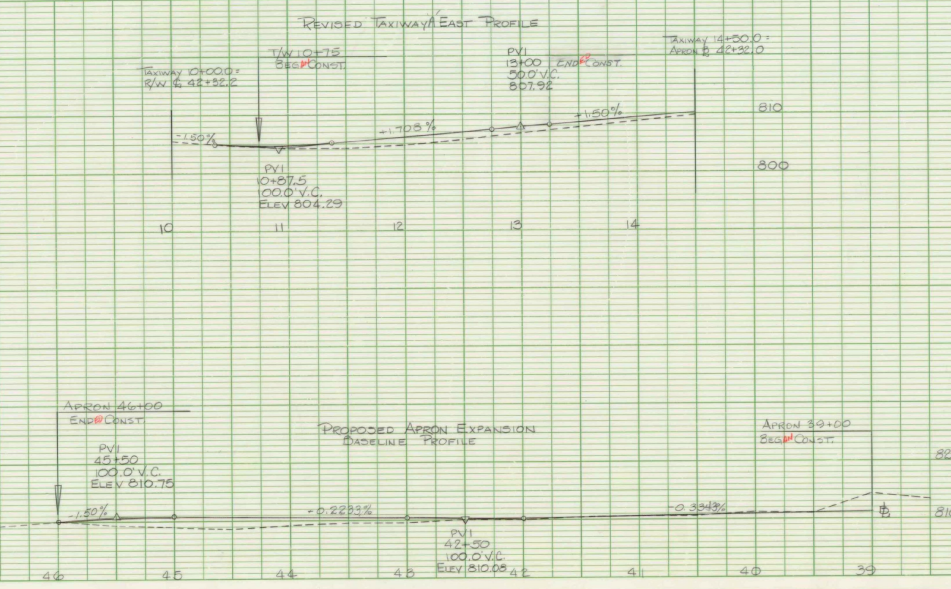 REVISED TAXIWAY "A" EAST PROFILE
TAXIWAY 10+00.0 =
R/W ℄ 42+32.2
T/W 10+75
BEGAN CONST.
PVI
13+00
50.0' V.C.
807.92
ENDED CONST.
TAXIWAY 14+50.0 =
APRON ℄ 42+32.0
-1.50%
+1.708%
+1.50%
810
800
PVI
10+87.5
100.0' V.C.
ELEV 804.29
10 11 12 13 14
APRON 46+00
ENDED CONST.
PVI
45+50
100.0' V.C.
ELEV 810.75
PROPOSED APRON EXPANSION
BASELINE PROFILE
APRON 39+00
BEGAN CONST.
82
-1.50%
-0.2233%
-0.3343%
810
PVI
42+50
100.0' V.C.
ELEV 810.08
46 45 44 43 42 41 40 39